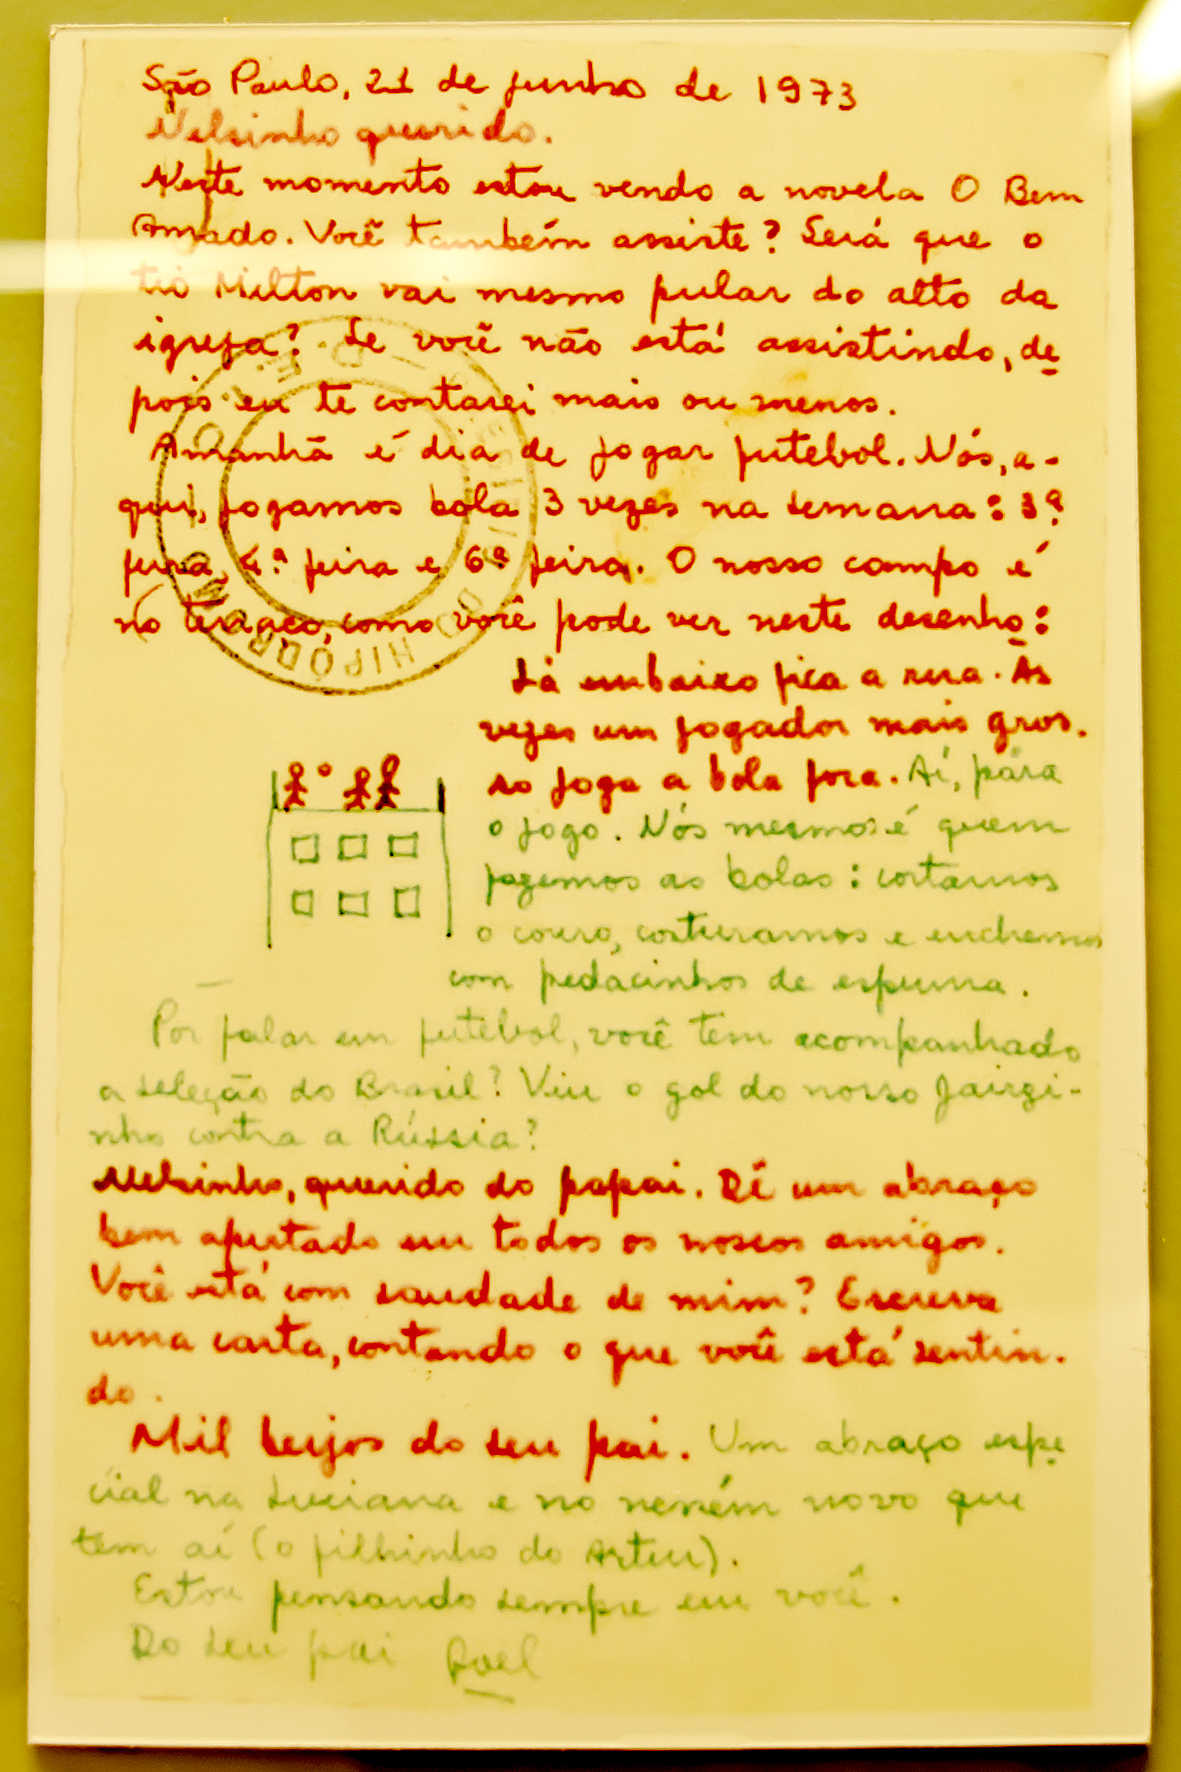 São Paulo, 21 de junho de 1973
Nelsinho querido.
Neste momento estou vendo a novela O Bem
Amado. Você também assiste? Será que o
tio Milton vai mesmo pular do alto da
igreja? Se você não está assistindo, de
pois eu te contarei mais ou menos.
Amanhã é dia de jogar futebol. Nós, a-
qui, jogamos bola 3 vezes na semana: 3ª
feira, 4ª feira e 6ª feira. O nosso campo é
no terraço, como você pode ver neste desenho:
Lá embaixo fica a rua. Às
vezes um jogador mais gros-
so joga a bola fora. Aí, pára
o jogo. Nós mesmos é quem
fazemos as bolas: cortamos
o couro, costuramos e enchemos
com pedacinhos de espuma.
Por falar em futebol, você tem acompanhado
a seleção do Brasil? Viu o gol do nosso Jairzi-
nho contra a Rússia?
Nelsinho, querido do papai. Dê um abraço
bem apertado em todos os nossos amigos.
Você está com saudade de mim? Escreva
uma carta, contando o que você está sentin-
do.
Mil beijos do seu pai. Um abraço espe
cial na Luciana e no neném novo que
tem aí (o filhinho do Artur).
Estou pensando sempre em você.
Do seu pai
HIPÓDROMO